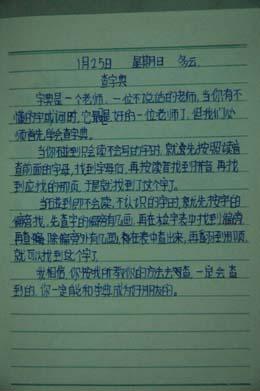 1月25日 星期日 多云
查字典
字典是一个老师,一位不说话的老师,当你有不
懂的字或词时,它就是最好的一位老师了,但我们必
须首先学会查字典。
当你碰到只会读不会写的字时,就首先按照读音
查前面的字母,找到字母后,再按读音找到拼音,再找
到应找的那页,于是就找到了这个字了。
当碰到即不会读,不认识的字时,就先按字的
偏旁找,先查字的偏旁有几画,再在检字表中找到偏旁
再查,除偏旁外有几画,都在表中查出来,再翻到那页,
就可以找到这个字了。
我相信,你按我所教你的方法去查,一定会查
到的,你一定能和字典成为好朋友的。